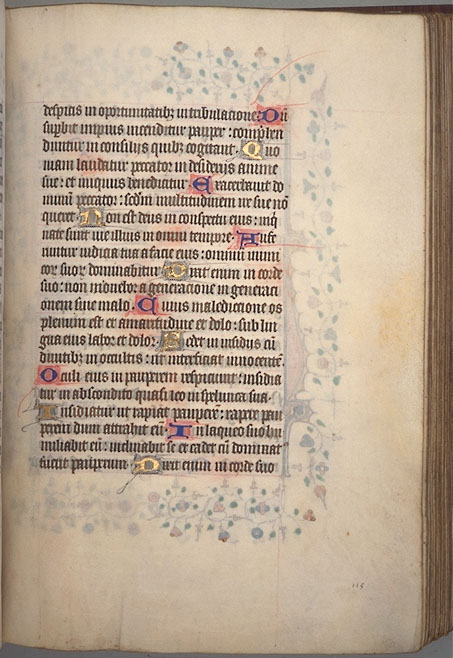 despicis in oportunitatibz in tribulacione. Dū
supbit impius incenditur pauper: comphen
duntur in consiliis quibz cogitant. Quo
niam laudatur peccator in desiderijs anime
sue: et iniquus benedicitur. Exacerbauit do
minū peccator: scdm multitudinem ire sue nō
queret. Non est deus in conspectu eius: inq
nate sunt uie illius in omni tempore. Aufe
runtur iudicia tua a facie eius: omniū inimi
cor suor dominabitur. Dixit enim in corde
suo: non mouebor a generacione in generaci
onem sine malo. Cuius malediccione os
plenum est et amaritudine et dolo: sub lin
gua eius labor et dolor. Sedet in insidiis cū
diuitibz in occultis: ut interficiat innocentē.
Oculi eius in pauperem respiciunt: insidia
tur in abscondito quasi leo in spelunca sua.
Insidiatur ut rapiat pauperē: rapere pau
perem dum attrahit eū. In laqueo suo hu
miliabit eū: inclinabit se et cadet cū dominat
fuerit pauperum. Dixit enim in corde suo
115